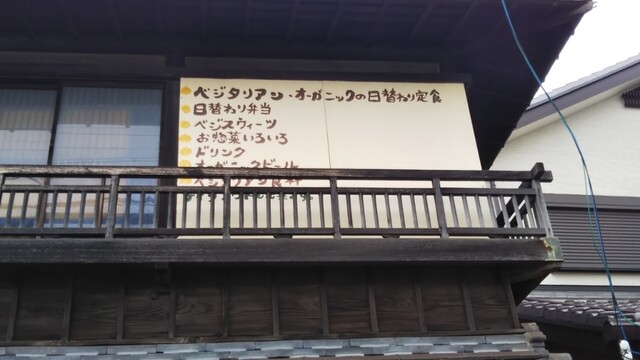 ベジタリアン・オーガニックの日替わり定食
日替わり弁当
ベジスウィーツ
お惣菜いろいろ
ドリンク
オーガニックビール
ベジタリアン食材